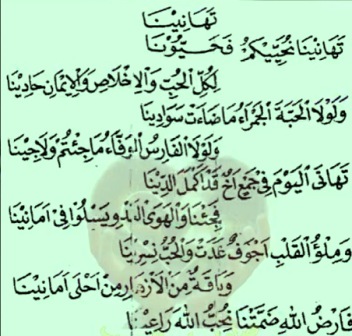 تَهَانِيْنَا
تَهَانِيْنَا نُحَيِّيْكُمْ فَحَيُّوْنَا
لِكُلِّ الْحُبِّ وَالْاِخْلَاصِ وَالْاِيْمَانِ حَادِيْنَا
وَلَوْلَا الْحَبَّةَ الْحَمْرَاءُ مَاضَاءَتْ سَوَادِيْنَا
وَلَوْلَا الْفَارِسُ الْوَفَّاءُ مَا جِئْتُمْ وَلَا جِيْنَا
تَهَانَى الْيَوْمَ فِيْ جَمْعِ اَخٍ قَدْ اَكْمَلَ الدِّيْنَا
فَجِئْنَا وَالْهَوَى يَسْلُوْا فِى اَمَانِيْنَا
وَمِلْؤُ الْقَلْبِ اَجْوَفُ غَدَتْ وَالْحُبُّ
وَبَاقَةٌ مِنَ الْاَزْهَارِ مِنْ اَحْلَى اَمَانِيْنَا
فَارْضُ اللهِ ضَمَّتْنَا نُحِبُّ اللهَ رَاعِيْنَا